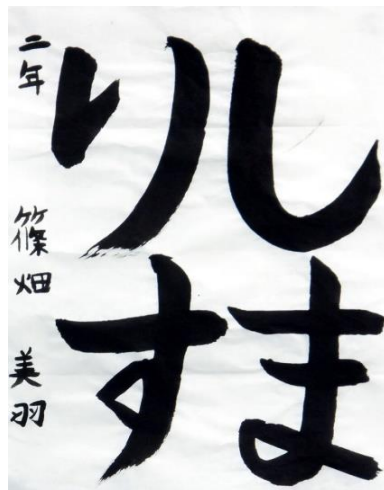 しま
りす
二年 篠畑 美羽